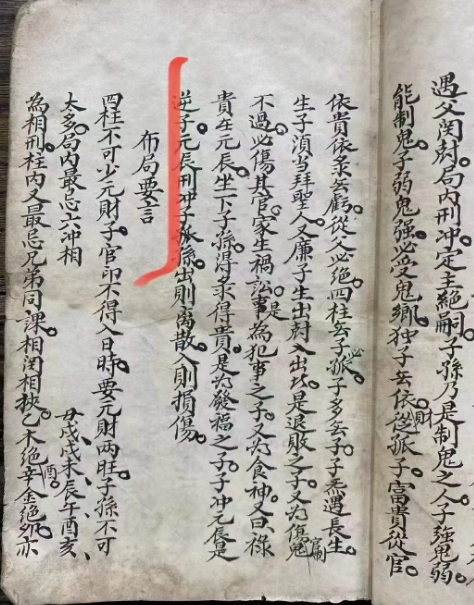 遇父閃封局内刑冲定主絶嗣子孫乃是制鬼之人子強鬼弱
能制鬼子弱鬼強必受鬼鄉独子去依從孤子富貴從官
財
依貴依条去虧從父必絶四柱去子孤子多去子子悉遇長生
必
生子須当拜聖人又廉子生出尅入出此是退敗之子又为傷鬼
竊
不過必傷其官家生禍訟事為犯事之子又为食神又曰禄
是
貴在元辰坐下子孫得乘得貴是为發福之子子冲元辰是
逆子元辰刑冲子孤孫出則离散入則損傷
布局要言
四柱不可少元財子官印不得入日時要元財兩旺子孫不可
太多局内最忌六冲相
丑戌戌未辰午酉亥
為相刑柱内又最忌兄弟同課相閃相挾乙木絶辛金絶卯亦
酉